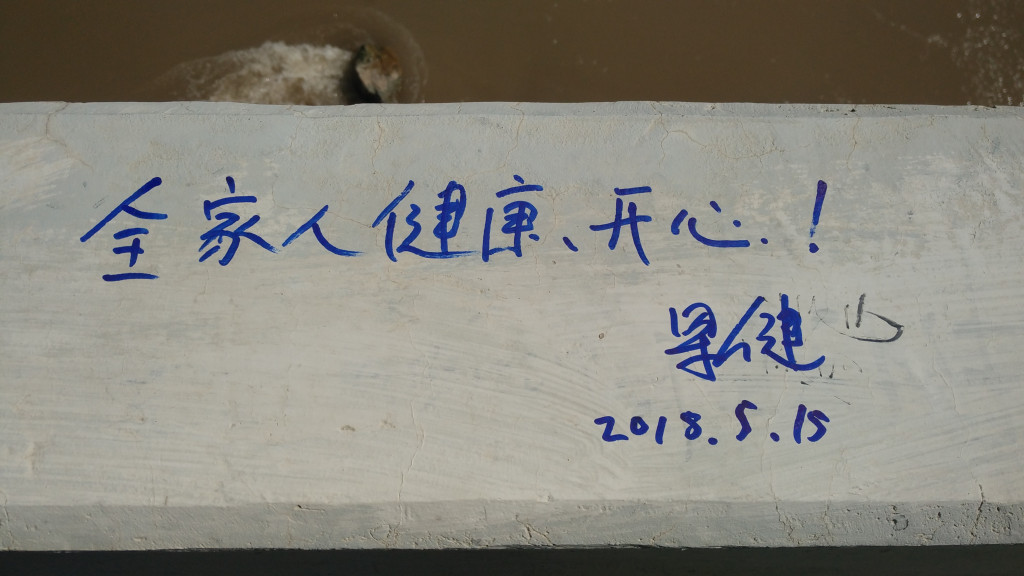 全家人健康、开心!
梁健
2018.5.15